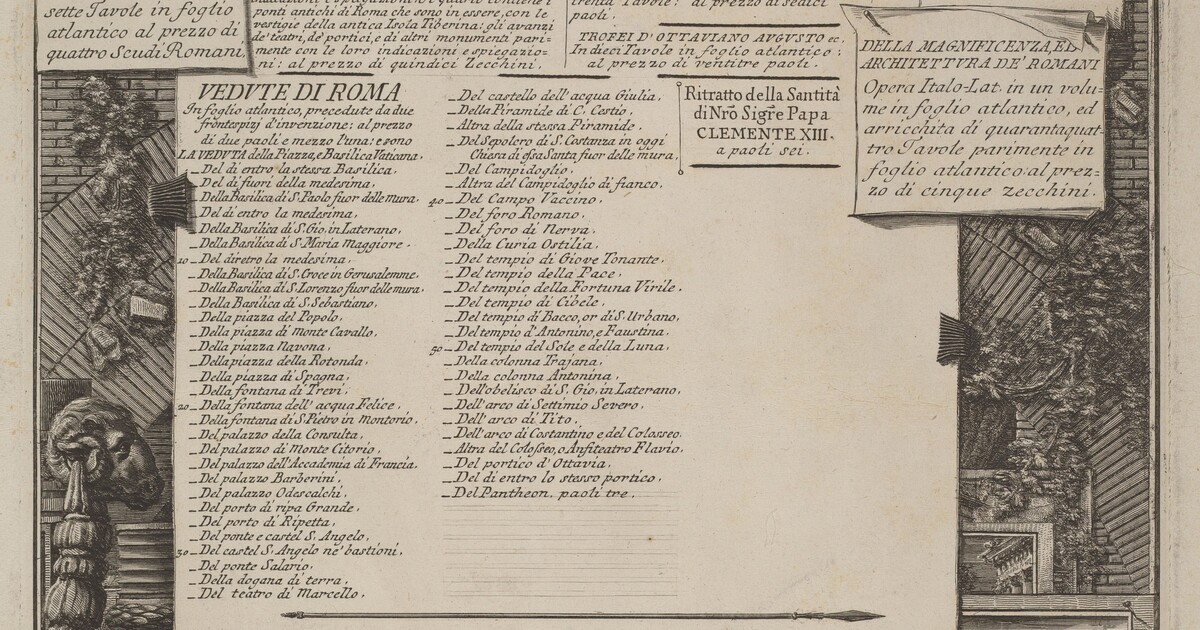 sette Tavole in foglio
atlantico al prezzo di
quattro Scudi Romani.
ponti antichi di Roma che sono in essere, con le
vestigie della antica Isola Tiberina: gli avanzi
de' teatri, de' portici, e di altri monumenti pari-
mente con le loro indicazioni e spiegazio-
ni: al prezzo di quindici Zecchini.
trenta Tavole: al prezzo di sedici
paoli.
TROFEI D'OTTAVIANO AVGVSTO ec.
In dieci Tavole in foglio atlantico:
al prezzo di ventitre paoli.
DELLA MAGNIFICENZA, ED
ARCHITETTVRA DE' ROMANI
Opera Italo-Lat. in un volu=
me in foglio atlantico, ed
arricchita di quarantaquat-
tro Tavole parimente in
foglio atlantico: al prez=
zo di cinque zecchini.
VEDVTE DI ROMA
In foglio atlantico, precedute da due
frontespizj d'invenzione: al prezzo
di due paoli e mezzo l'una: e sono
LA VEDVTA della Piazza, e Basilica Vaticana.
_Del di entro la stessa Basilica.
_Del di fuori della medesima.
_Della Basilica di S. Paolo fuor delle mura.
_Del di entro la medesima.
_Della Basilica di S. Gio. in Laterano.
_Della Basilica di S. Maria Maggiore.
10 _Del diretro la medesima.
_Della Basilica di S. Croce in Gerusalemme.
_Della Basilica di S. Lorenzo fuor delle mura.
_Della Basilica di S. Sebastiano.
_Della piazza del Popolo.
_Della piazza di Monte Cavallo.
_Della piazza Navona.
_Della piazza della Rotonda.
_Della piazza di Spagna.
_Della fontana di Trevi.
20 _Della fontana dell'acqua Felice.
_Della fontana di S. Pietro in Montorio.
_Del palazzo della Consulta.
_Del palazzo di Monte Citorio.
_Del palazzo dell'Accademia di Francia.
_Del palazzo Barberini.
_Del palazzo Odescalchi.
_Del porto di ripa Grande.
_Del porto di Ripetta.
_Del ponte e castel S. Angelo.
30 _Del castel S. Angelo ne' bastioni.
_Del ponte Salario.
_Della dogana di terra.
_Del teatro di Marcello.
_Del castello dell'acqua Giulia.
_Della Piramide di C. Cestio.
_Altra della stessa Piramide.
_Del Sepolcro di S. Costanza in oggi
Chiesa di essa Santa fuor delle mura.
_Del Campidoglio.
_Altra del Campidoglio di fianco.
40 _Del Campo Vaccino.
_Del foro Romano.
_Del foro di Nerva.
_Della Curia Ostilia.
_Del tempio di Giove Tonante.
_Del tempio della Pace.
_Del tempio della Fortuna Virile.
_Del tempio di Cibele.
_Del tempio di Bacco, or di S. Urbano.
_Del tempio d'Antonino, e Faustina.
50 _Del tempio del Sole e della Luna.
_Della colonna Trajana.
_Della colonna Antonina.
_Dell'obelisco di S. Gio. in Laterano.
_Dell'arco di Settimio Severo.
_Dell'arco di Tito.
_Dell'arco di Costantino e del Colosseo.
_Altra del Colosseo, o Anfiteatro Flavio.
_Del portico d'Ottavia.
_Del di entro lo stesso portico.
_Del Pantheon. paoli tre.
Ritratto della Santità
di Nrõ Sigre Papa
CLEMENTE XIII.
a paoli sei.